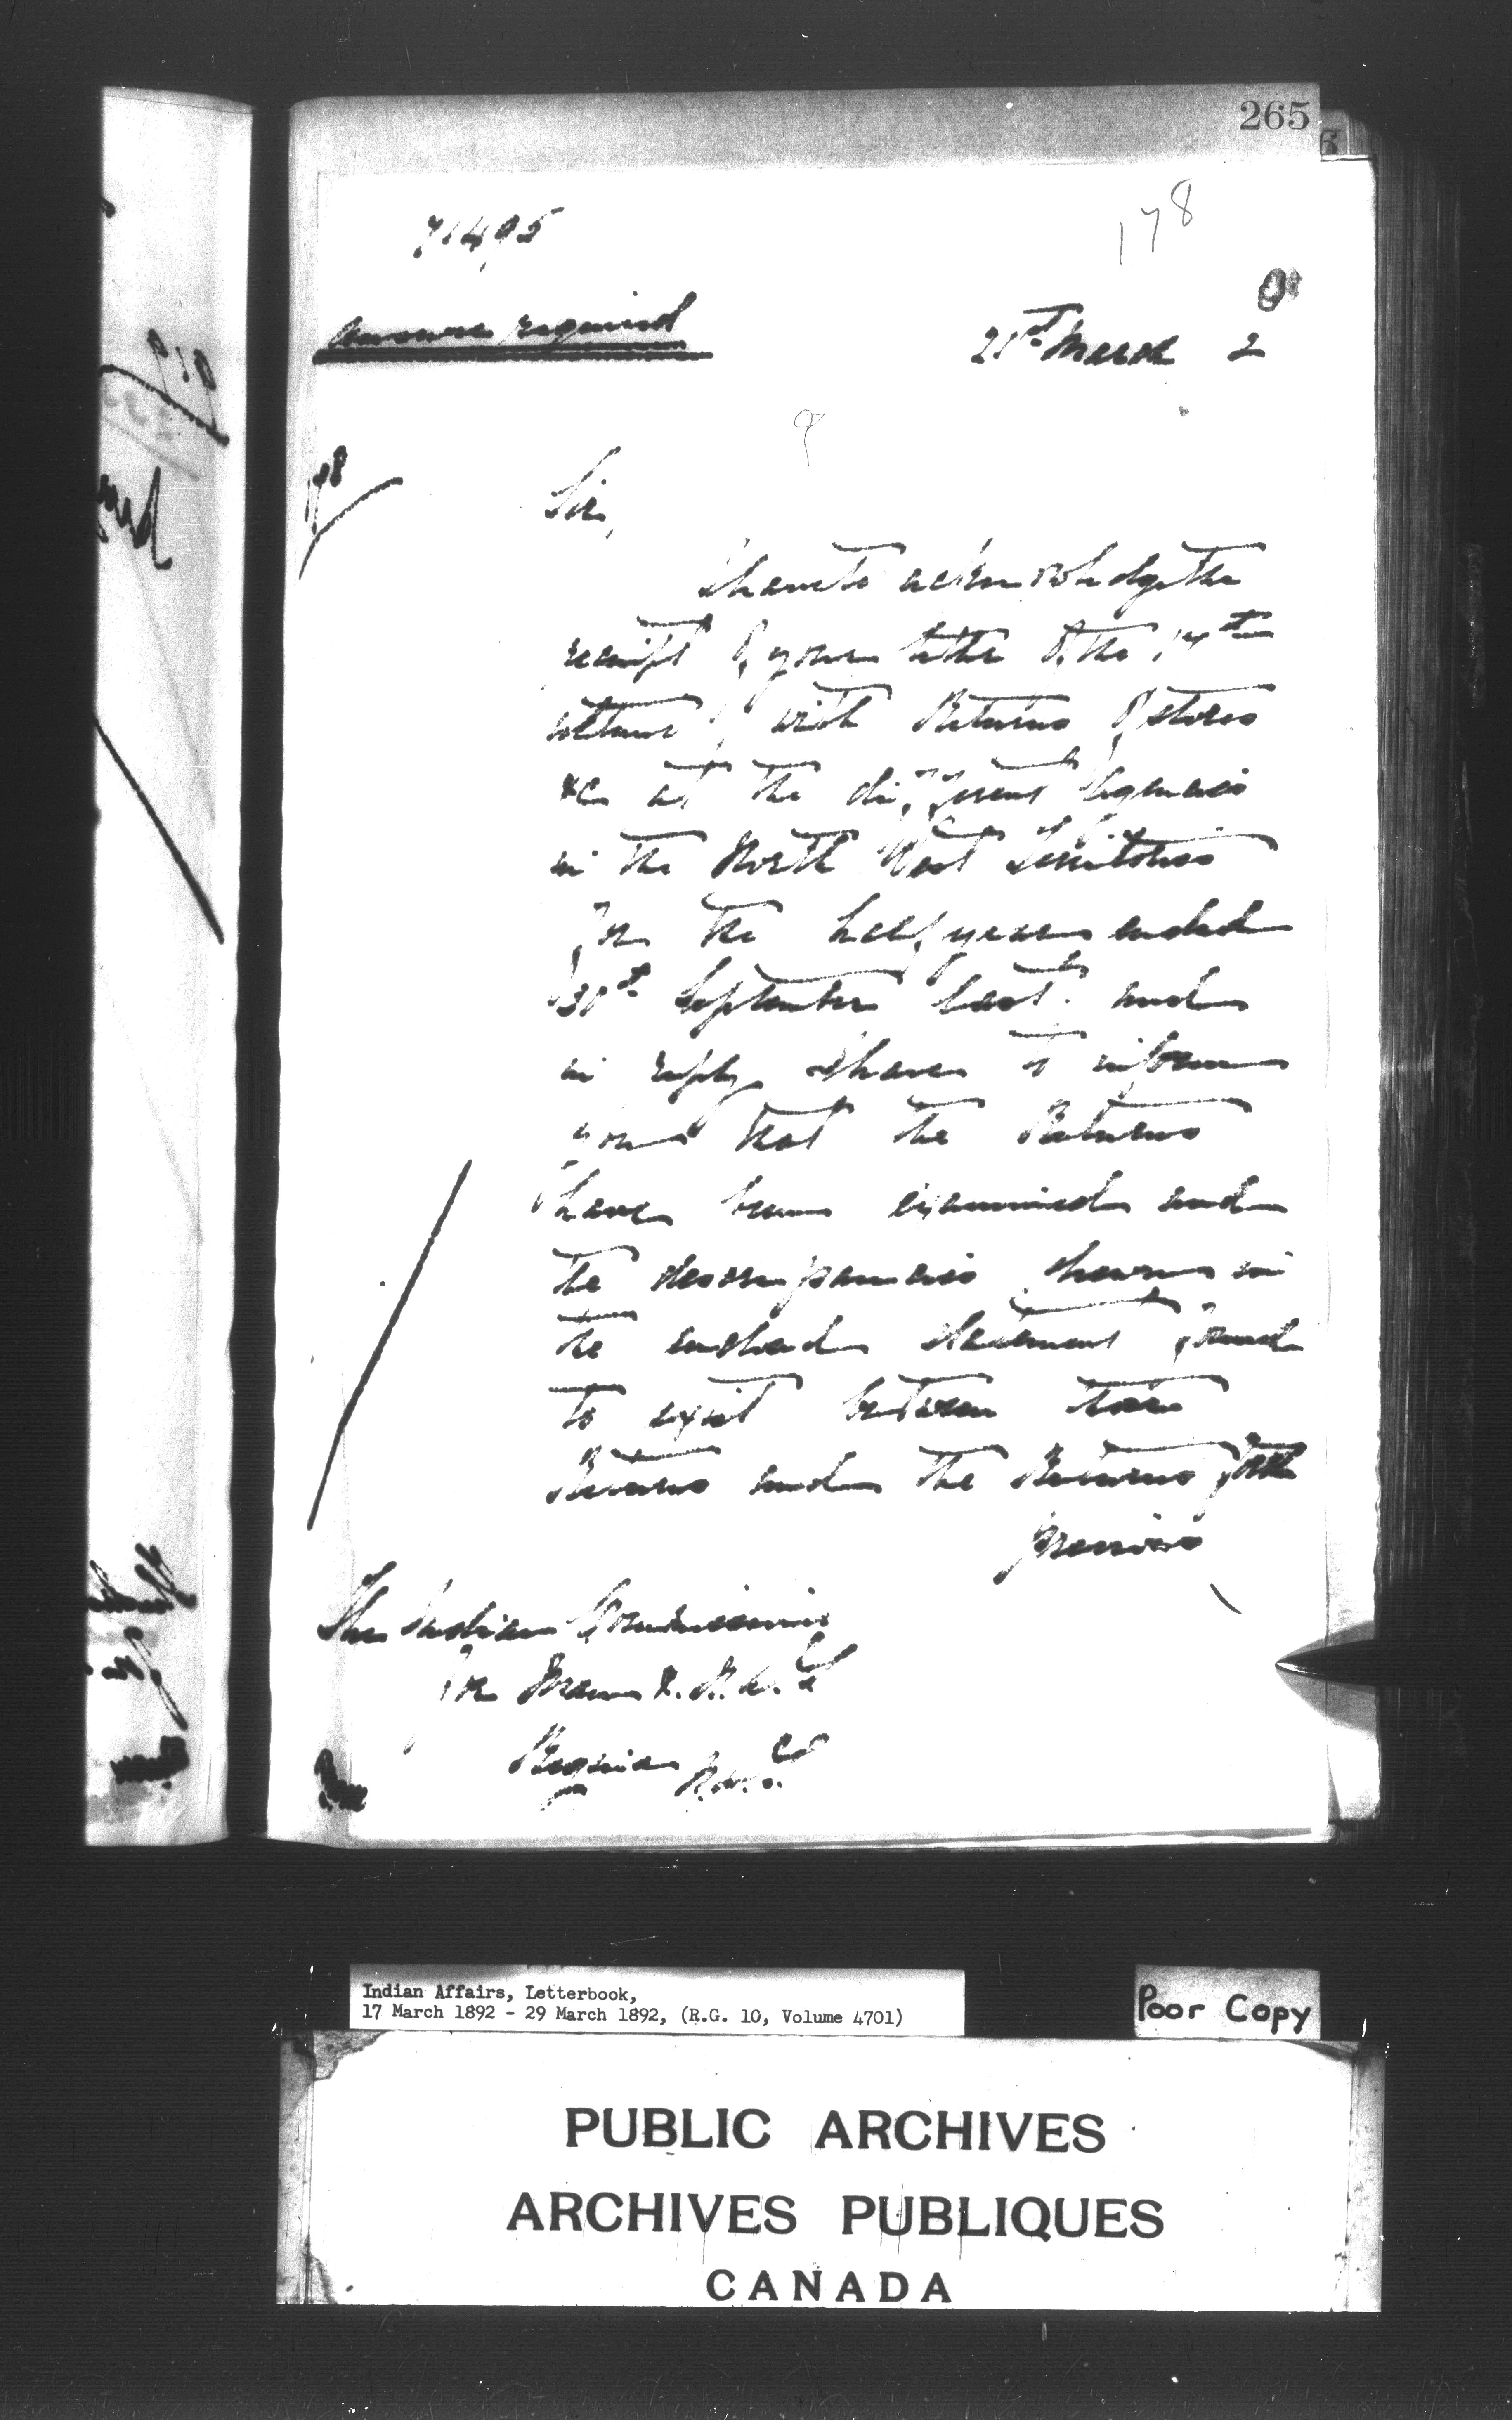 265
178
71495
Answer required
21st March 2
198
Sir,
I have to acknowledge the
receipt of your letter of the 14th
with Returns of stores
&c at the different Agencies
in the North West Territories
for the half year ended
30th September last and
in reply I have to inform
you that the Returns
have been examined and
the discrepancies shown in
the enclosed statement found
to exist between these
Returns and the Returns for the
previous
The Indian Commissioner
for Man & N.W.T.
Regina N.W.T.
Indian Affairs, Letterbook,
17 March 1892 - 29 March 1892, (R.G. 10, Volume 4701)
Poor Copy
PUBLIC ARCHIVES
ARCHIVES PUBLIQUES
CANADA